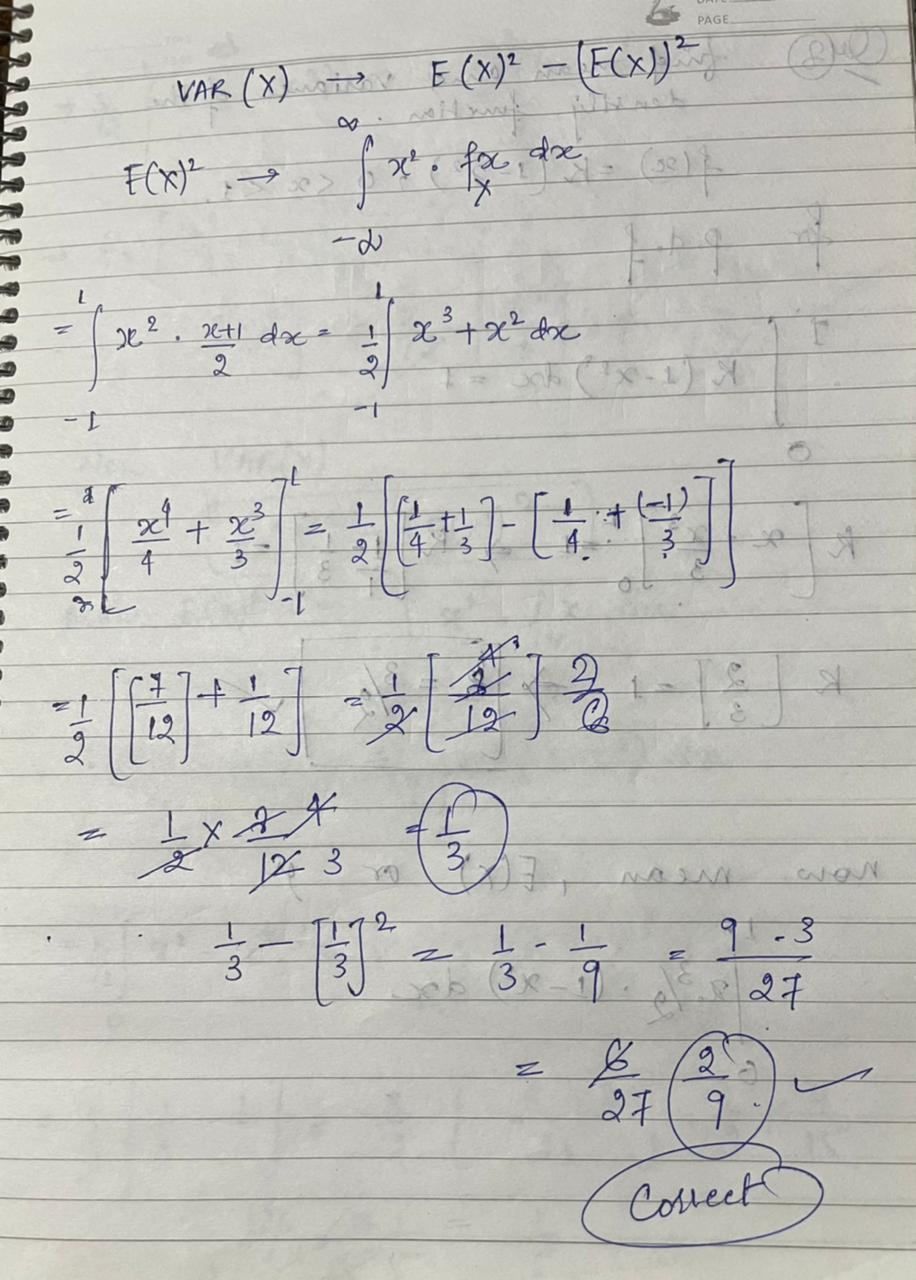 PAGE
VAR (X) → E(X)² - (E(X))²
E(X)² → ∫_{-∞}^{∞} x² · fx_X dx
= ∫_{-1}^{1} x² · (x+1)/2 dx = 1/2 ∫_{-1}^{1} x³ + x² dx
= 1/2 [x⁴/4 + x³/3]_{-1}^{1} = 1/2 [[1/4 + 1/3] - [1/4 + (-1)/3]]
= 1/2 [[7/12] + 1/12] = 1/2 [/12] 2/6
= 1/2 × /12 4 3 = 1/3
1/3 - [1/3]² = 1/3 - 1/9 = 9 - 3/27
= 6/27 2/9 ✓
Correct